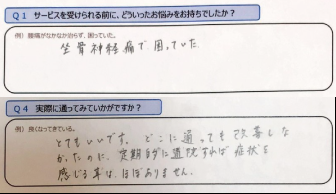 Q1 サービスを受けられる前に、どういったお悩みをお持ちでしたか？
例）腰痛がなかなか治らず、困っていた。
坐骨神経痛で困っていた
Q4 実際に通ってみていかがですか？
例）良くなってきている。
とてもいいです。どこに通っても改善しな
かったのに、定期的に通院すれば症状を
感じる事は、ほぼありません。